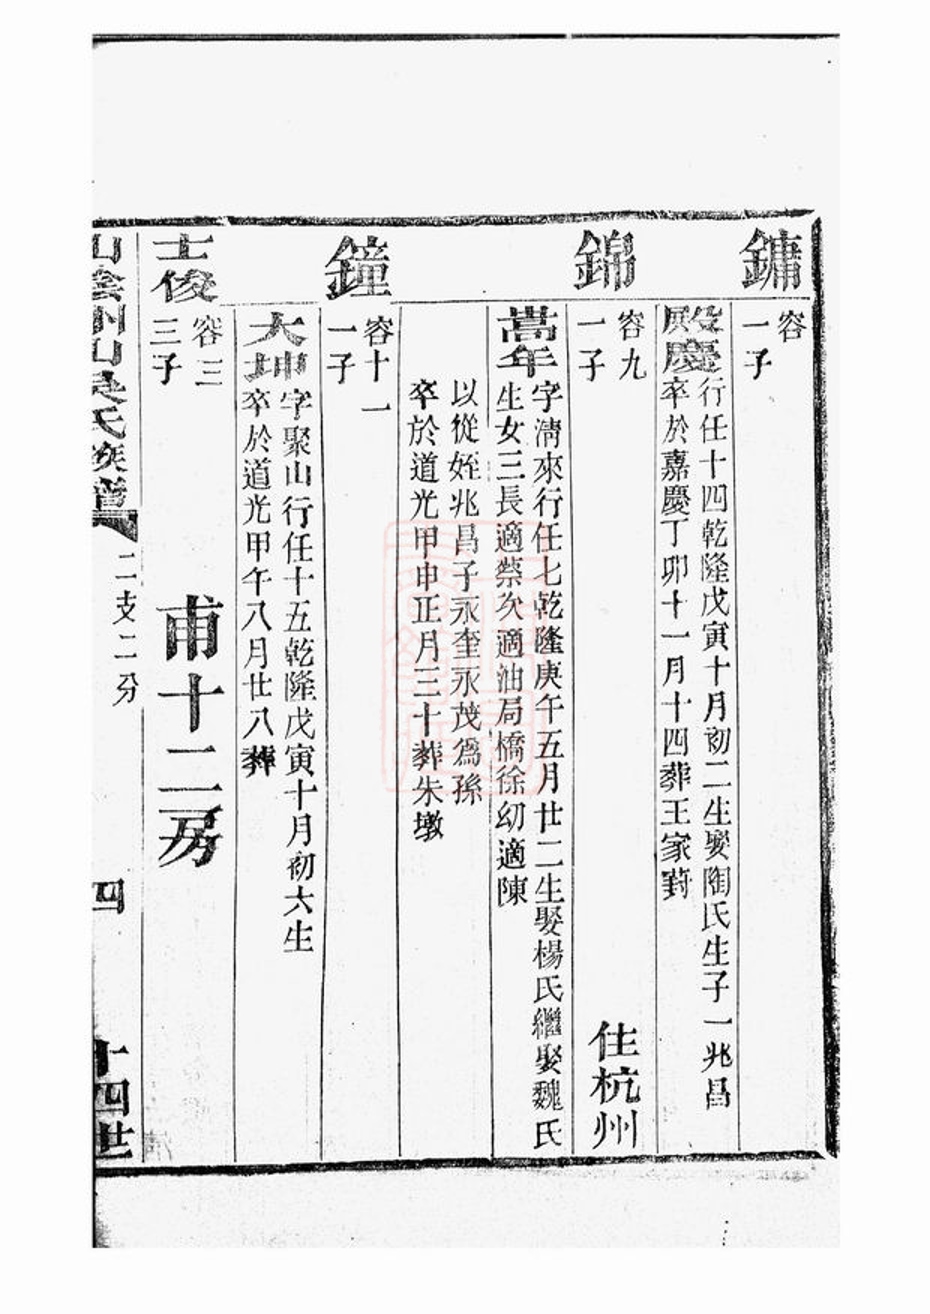 鏞
容
一子
殿慶
行任十四乾隆戊寅十月初二生娶陶氏生子一兆昌
卒於嘉慶丁卯十一月十四葬王家葑
錦
容九
一子
住杭州
嵩年
字淸來行任七乾隆庚午五月廿二生娶楊氏繼娶魏氏
生女三長適蔡次適油局橋徐幼適陳
以從姪兆昌子永奎永茂爲孫
卒於道光甲申正月三十葬朱墩
鐘
容十一
一子
大坤
字聚山行任十五乾隆戊寅十月初六生
卒於道光甲午八月廿八葬
士俊
容三
三子
甫十二房
山陰州山吳氏族譜
二支二分
四
十四世